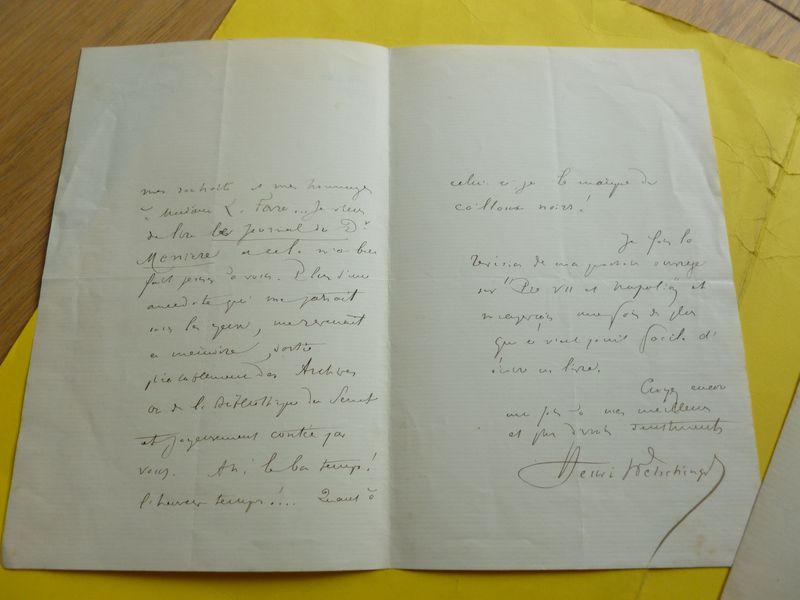 mes souhaits et mes hommages
à Madame L. Favre... Je viens
de lire le Journal du Dr
Menière et cela m'a bien
fait penser à vous. Plus d'une
anecdote qui me passait
sous les yeux, me revenait
en mémoire, sortie
préalablement des Archives
ou de la Bibliothèque du Sénat
et joyeusement contée par
vous. Ah! le bon temps!
l'heureux temps!... Quant à
celui-ci je le marque de
cailloux noirs!
Je fais la
révision de ma prochain ouvrage
sur "Pie VII et Napoléon" et
m'aperçois une fois de plus
qu'il n'est point facile d'
écrire un livre.
Croyez encore
une fois à mes meilleurs
et plus dévoués sentiments
Henri Welschinger